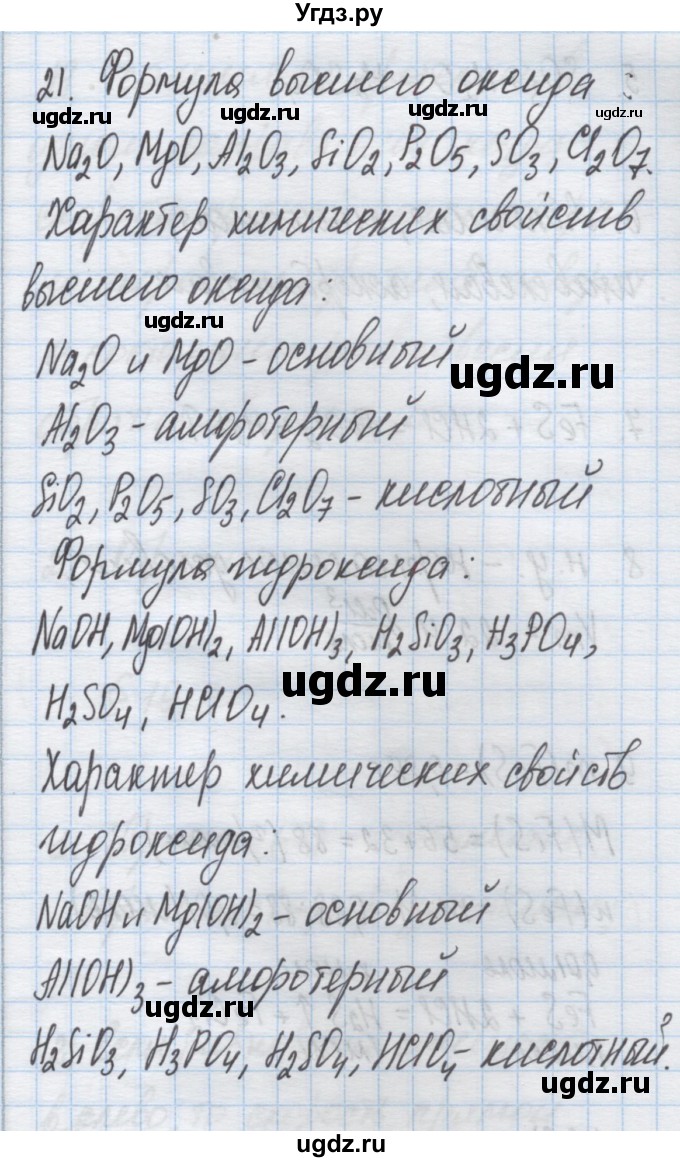 Угдз.ру
21. Формула высшего оксида :
ugdz.ru ugdz.ru ugdz.ru ugdz.ru
Na₂O, MgO, Al₂O₃, SiO₂, P₂O₅, SO₃, Cl₂O₇.
Характер химических свойств
высшего оксида:
ugdz.ru
Na₂O и MgO - основный
ugdz.ru
Al₂O₃ - амфотерный
SiO₂, P₂O₅, SO₃, Cl₂O₇ - кислотный
ugdz.ru
Формула гидроксида:
NaOH, Mg(OH)₂, Al(OH)₃, H₂SiO₃, H₃PO₄,
ugdz.ru
H₂SO₄, HClO₄.
Характер химических свойств
гидроксида:
NaOH и Mg(OH)₂ - основный
Al(OH)₃ - амфотерный
ugdz.ru ugdz.ru
H₂SiO₃, H₃PO₄, H₂SO₄, HClO₄ - кислотный.
ugdz.ru
ugdz.ru
ugdz.ru